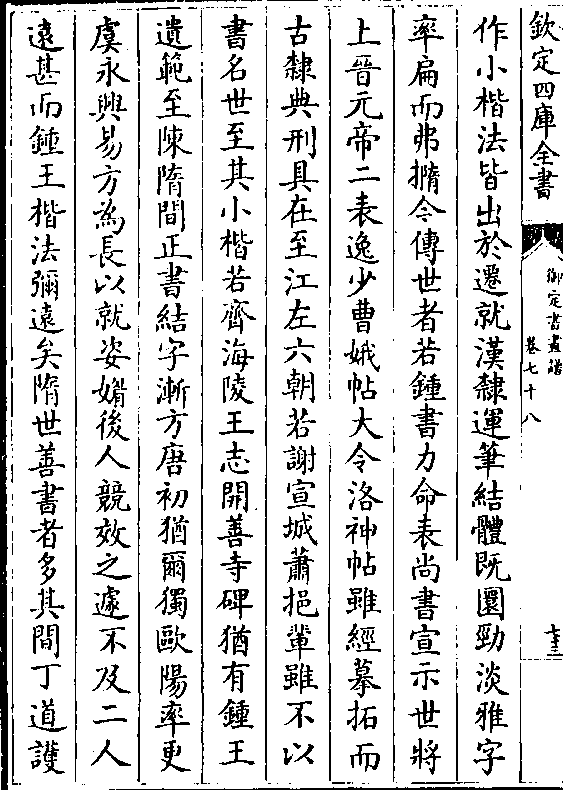 欽定四庫全書
御定書畫譜
卷七十八
十三
作小楷法皆出於遷就漢隸運筆結體既圜勁淡雅字
率扁而弗撱今傳世者若鍾書力命表尚書宣示世將
上晉元帝二表逸少曹娥帖大令洛神帖雖經摹拓而
古隸典刑具在至江左六朝若謝宣城蕭挹輩雖不以
書名世至其小楷若齊海陵王志開善寺碑猶有鍾王
遺範至陳隋間正書結字漸方唐初猶爾獨歐陽率更
虞永興易方為長以就姿媚後人競效之遽不及二人
遠甚而鍾王楷法彌遠矣隋世善書者多其間丁道護